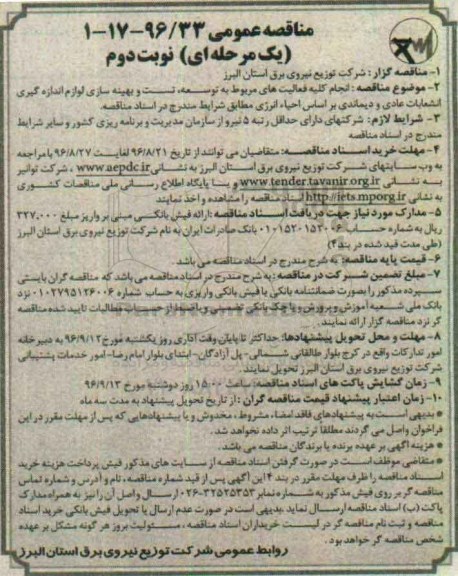 مناقصه عمومی ۹۶/۳۳-۱۷-۱
(یک مرحله ای) نوبت دوم
۱- مناقصه گزار: شرکت توزیع نیروی برق استان البرز
۲- موضوع مناقصه: انجام کلیه فعالیت های مربوط به توسعه، تست و بهینه سازی لوازم اندازه گیری
انشعابات عادی و دیماندی بر اساس احیاء انرژی مطابق شرایط مندرج در اسناد مناقصه.
۳- شرایط لازم: شرکتهای دارای حداقل رتبه ۵ نیرو از سازمان مدیریت و برنامه ریزی کشور و سایر شرایط
مندرج در اسناد مناقصه
۴- مهلت خرید اسناد مناقصه: متقاضیان می توانند از تاریخ ۹۶/۸/۲۱ لغایت ۹۶/۸/۲۷ با مراجعه
به وب سایتهای شرکت توزیع نیروی برق استان البرز به نشانی www.aepdc.ir ، شرکت توانیر
به نشانی www.tender.tavanir.org.ir و یا پایگاه اطلاع رسانی ملی مناقصات کشوری
به نشانی http://iets.mporg.ir اسناد مناقصه را مشاهده و اخذ نمایند
۵- مدارک مورد نیاز جهت دریافت اسناد مناقصه: ارائه فیش بانکی مبنی بر واریز مبلغ ۳۲۷,۰۰۰
ریال به شماره حساب ۰۱۰۱۵۲۰۱۵۳۰۰۶ بانک صادرات ایران به نام شرکت توزیع نیروی برق استان البرز
(طی مدت قید شده در بند۴)
۶- قیمت پایه مناقصه: به شرح مندرج در اسناد مناقصه می باشد.
۷- مبلغ تضمین شرکت در مناقصه: به شرح مندرج در اسناد مناقصه می باشد که مناقصه گران بایستی
سپرده مذکور را بصورت ضمانتنامه بانکی یا فیش بانکی واریزی به حساب شماره ۰۱۰۲۷۹۵۱۲۶۰۰۶ نزد
بانک ملی شعبه آموزش و پرورش و یا چک بانکی تضمینی و یا ضبط از حساب مطالبات تایید شده مناقصه
گر نزد مناقصه گزار ارائه نمایند.
۸- مهلت و محل تحویل پیشنهادها: حداکثر تا پایان وقت اداری روز یکشنبه مورخ ۹۶/۹/۱۲ به دبیرخانه
امور تدارکات واقع در کرج بلوار طالقانی شمالی- پل آزادگان- ابتدای بلوار امام رضا- امور خدمات پشتیبانی
شرکت توزیع نیروی برق استان البرز تحویل نمایند.
۹- زمان گشایش پاکت های اسناد مناقصه: ساعت ۱۵:۰۰ روز دوشنبه مورخ ۹۶/۹/۱۳
۱۰- زمان اعتبار پیشنهاد قیمت مناقصه گران: از تاریخ تحویل پیشنهاد به مدت سه ماه
* بدیهی است به پیشنهادهای فاقد امضاء، مشروط، مخدوش و یا پیشنهادهایی که پس از مهلت مقرر در این
فراخوان واصل می گردند مطلقا ترتیب اثر داده نخواهد شد.
* هزینه آگهی بر عهده برنده یا برندگان مناقصه می باشد.
* متقاضی موظف است در صورت گرفتن اسناد مناقصه از سایت های مذکور فیش پرداخت هزینه خرید
اسناد مناقصه را ظرف مهلت مقرر در بند ۴ این آگهی پس از قید شماره مناقصه، نام و آدرس و شماره تماس
مناقصه گر بر روی فیش مذکور به شماره نمابر ۳۲۵۲۵۳۵۳-۰۲۶ ارسال و اصل آن را نیز به همراه مدارک
پاکت (ب) اسناد مناقصه ارسال نماید. بدیهی است در صورت عدم ارسال یا تحویل فیش بانکی خرید اسناد
مناقصه و ثبت نام مناقصه گر در لیست خریداران اسناد مناقصه، مسئولیت بروز هر گونه مشکل بر عهده
شخص مناقصه گر خواهد بود.
روابط عمومی شرکت توزیع نیروی برق استان البرز